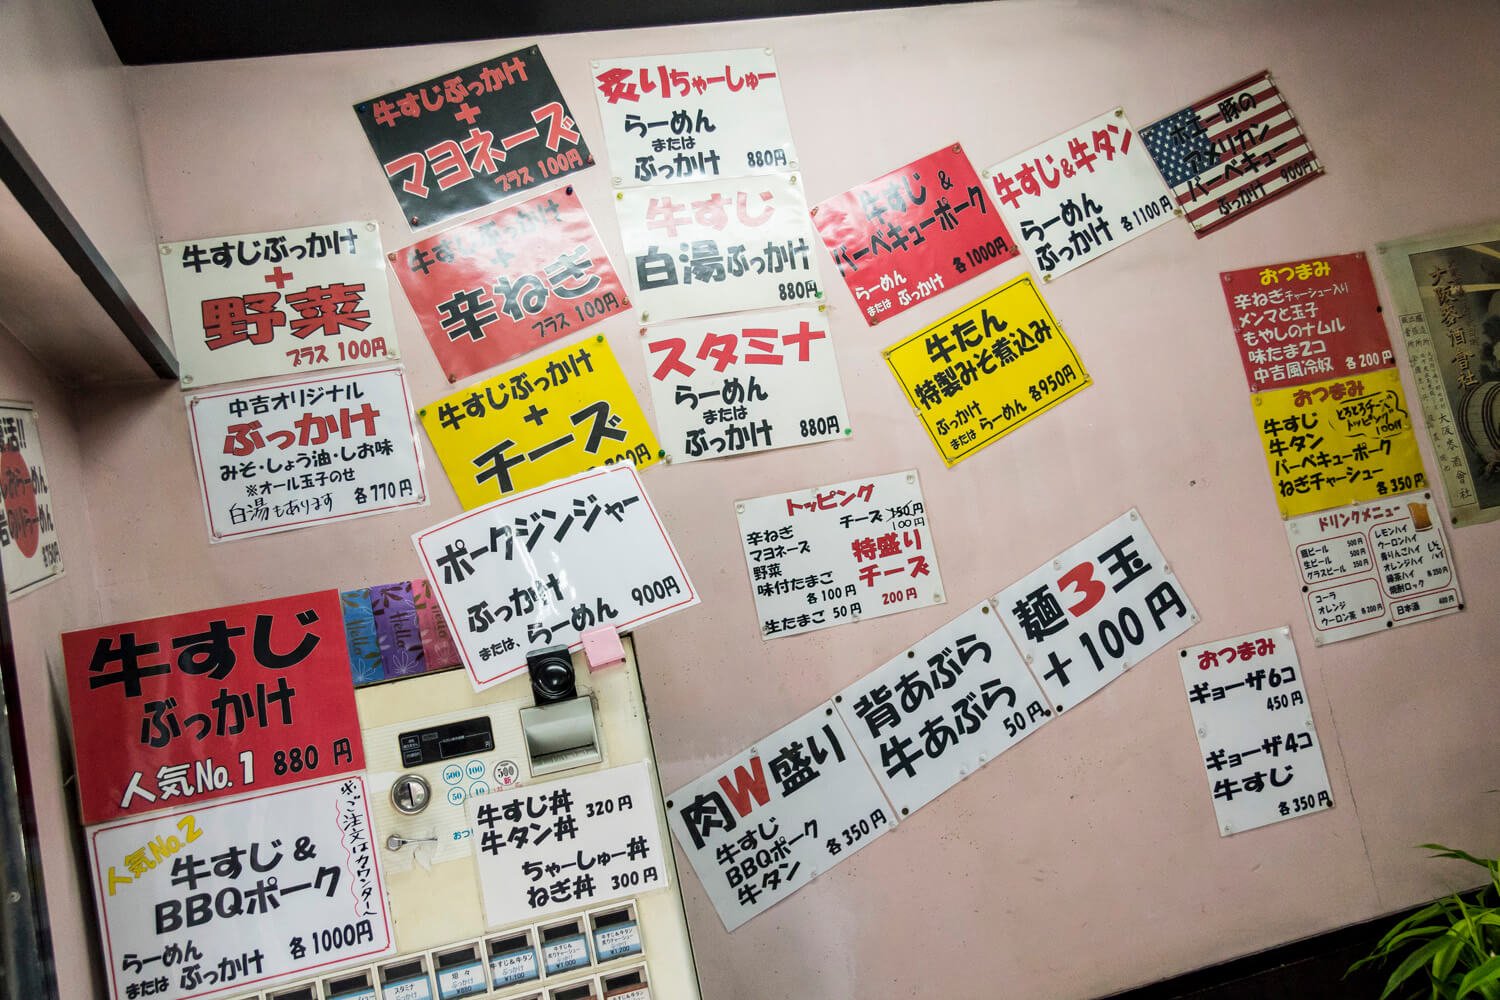 牛すじぶっかけ
+
マヨネーズ
プラス 100円
炙りちゃーしゅー
らーめん
または
ぶっかけ 880円
牛すじぶっかけ
+
野菜
プラス 100円
牛すじぶっかけ
+
辛ねぎ
プラス 100円
牛すじ
白湯ぶっかけ
880円
牛すじ &
バーベキューポーク
らーめん
または ぶっかけ 各1000円
牛すじ&牛タン
らーめん
ぶっかけ 各1100円
ホエー豚の
アメリカン
バーベキュー
ぶっかけ 900円
中吉オリジナル
ぶっかけ
みそ・しょう油・しお味
※オール玉子のせ
白湯もあります 各770円
牛すじぶっかけ
+
チーズ
スタミナ
らーめん
または
ぶっかけ 880円
牛たん
特製みそ煮込み
ぶっかけ
または らーめん 各950円
おつまみ
辛ねぎチャーシュー入り
メンマと玉子
もやしのナムル
味たま2コ
中吉風冷奴 各200円
おつまみ
牛すじ
牛タン
バーベキューポーク
ねぎチャーシュー
各350円
とろとろチーズ
トッピング
100円
ポークジンジャー
ぶっかけ
または、らーめん 900円
トッピング
辛ねぎ
マヨネーズ
野菜
味付たまご
各100円
生たまご 50円
チーズ 150円
100円
特盛り
チーズ
200円
ドリンクメニュー
瓶ビール 500円
生ビール 500円
グラスビール 250円
コーラ
オレンジ
ウーロン茶 各200円
レモンハイ
ウーロンハイ
青りんごハイ
オレンジハイ
緑茶ハイ
焼酎ロック 各350円
日本酒 400円
麺3玉
+100円
背あぶら
牛あぶら
50円
肉W盛り
牛すじ
BBQポーク
牛タン 各350円
おつまみ
ギョーザ6コ
450円
ギョーザ4コ
牛すじ
各350円
牛すじ
ぶっかけ
人気No.1 880円
人気No.2
牛すじ &
BBQポーク
らーめん
または ぶっかけ 各1000円
※ご注文はカウンターへ
Hello
Hello
Hello
500 100
50 10
500
新
牛すじ丼
牛タン丼 320円
ちゃーしゅー丼
ねぎ丼 300円
スタミナ
ぶっかけ
坦々
ぶっかけ
¥880
牛すじ&牛タン
ぶっかけ
¥1,100
大阪
酒會社